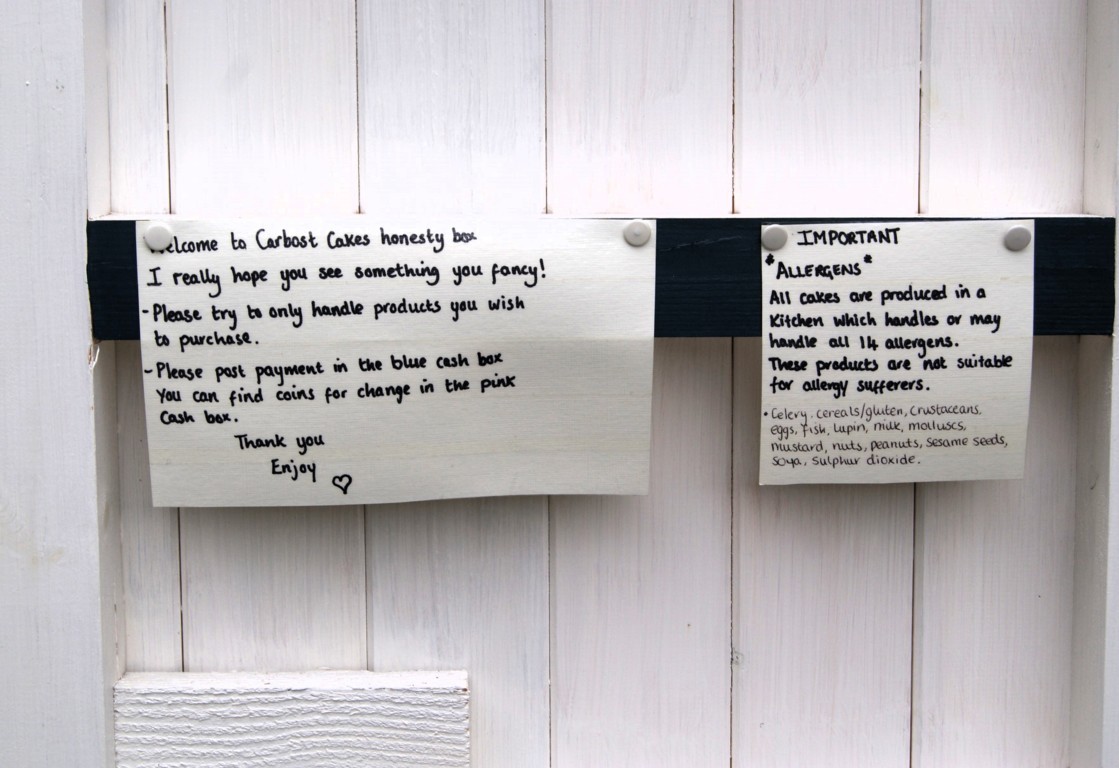 Welcome to Carbost Cakes honesty box
I really hope you see something you fancy!
- Please try to only handle products you wish
to purchase.
- Please post payment in the blue cash box
You can find coins for change in the pink
Cash box.
Thank you
Enjoy ♡
IMPORTANT
*ALLERGENS*
All cakes are produced in a
Kitchen which handles or may
handle all 14 allergens.
These products are not suitable
for allergy sufferers.
• Celery, cereals/gluten, crustaceans,
eggs, fish, lupin, milk, molluscs,
mustard, nuts, peanuts, sesame seeds,
soya, sulphur dioxide.